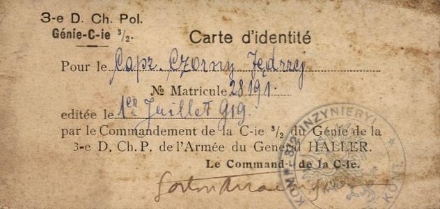 3-e D. Ch. Pol.
Génie-C-ie 3/2.
Carte d'identité
Pour le Capr. Czorny Jędrzej
№ Matricule 28191.
editée le 1er Juillet 919
par le Commandement de la C-ie 3/2 du Génie de la
3-e D. Ch. P. de l'Armée du General HALLER.
Le Command- de la C-ie.